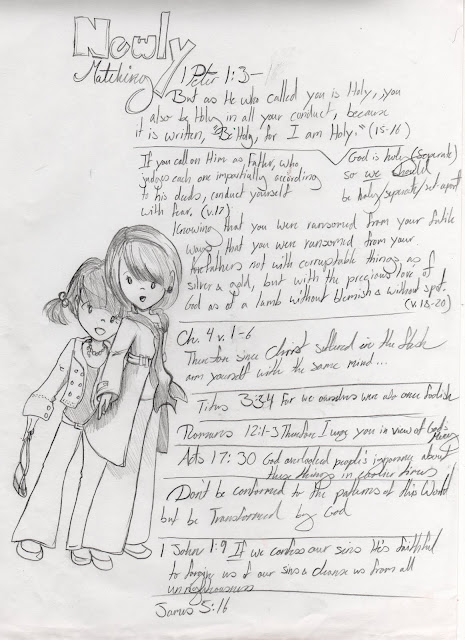 Newly
Matching
1 Peter 1:3-
But as He who called you is Holy, you
also be Holy in all your conduct, because
it is written, "Be Holy, for I am Holy." (15-16)
If you call on Him as Father, who
judges each one impartially according
to his deeds, conduct yourself
with fear. (v.17)
God is holy (separate)
so we should
be holy/separate/set apart
Knowing that you were ransomed from your futile
ways that you were ransomed from your
forefathers not with corruptable things as
silver & gold, but with the precious love of
God as of a lamb without blemish & without spot.
(v.18-20)
Ch. 4 v. 1-6
Therefore since Christ suffered in the flesh
arm yourself with the same mind...
Titus 3:3-4 For we ourselves were also once foolish
Romans 12:1-3 Therefore I urge you in view of God's
Mercy
Acts 17:30 God overlooked people's ignorance about
these things in earlier times
Don't be conformed to the patterns of this World
but be Transformed by God
1 John 1:9 If we confess our sins He's faithful
to forgive us of our sins & cleanse us from all
unrighteousness
James 5:16